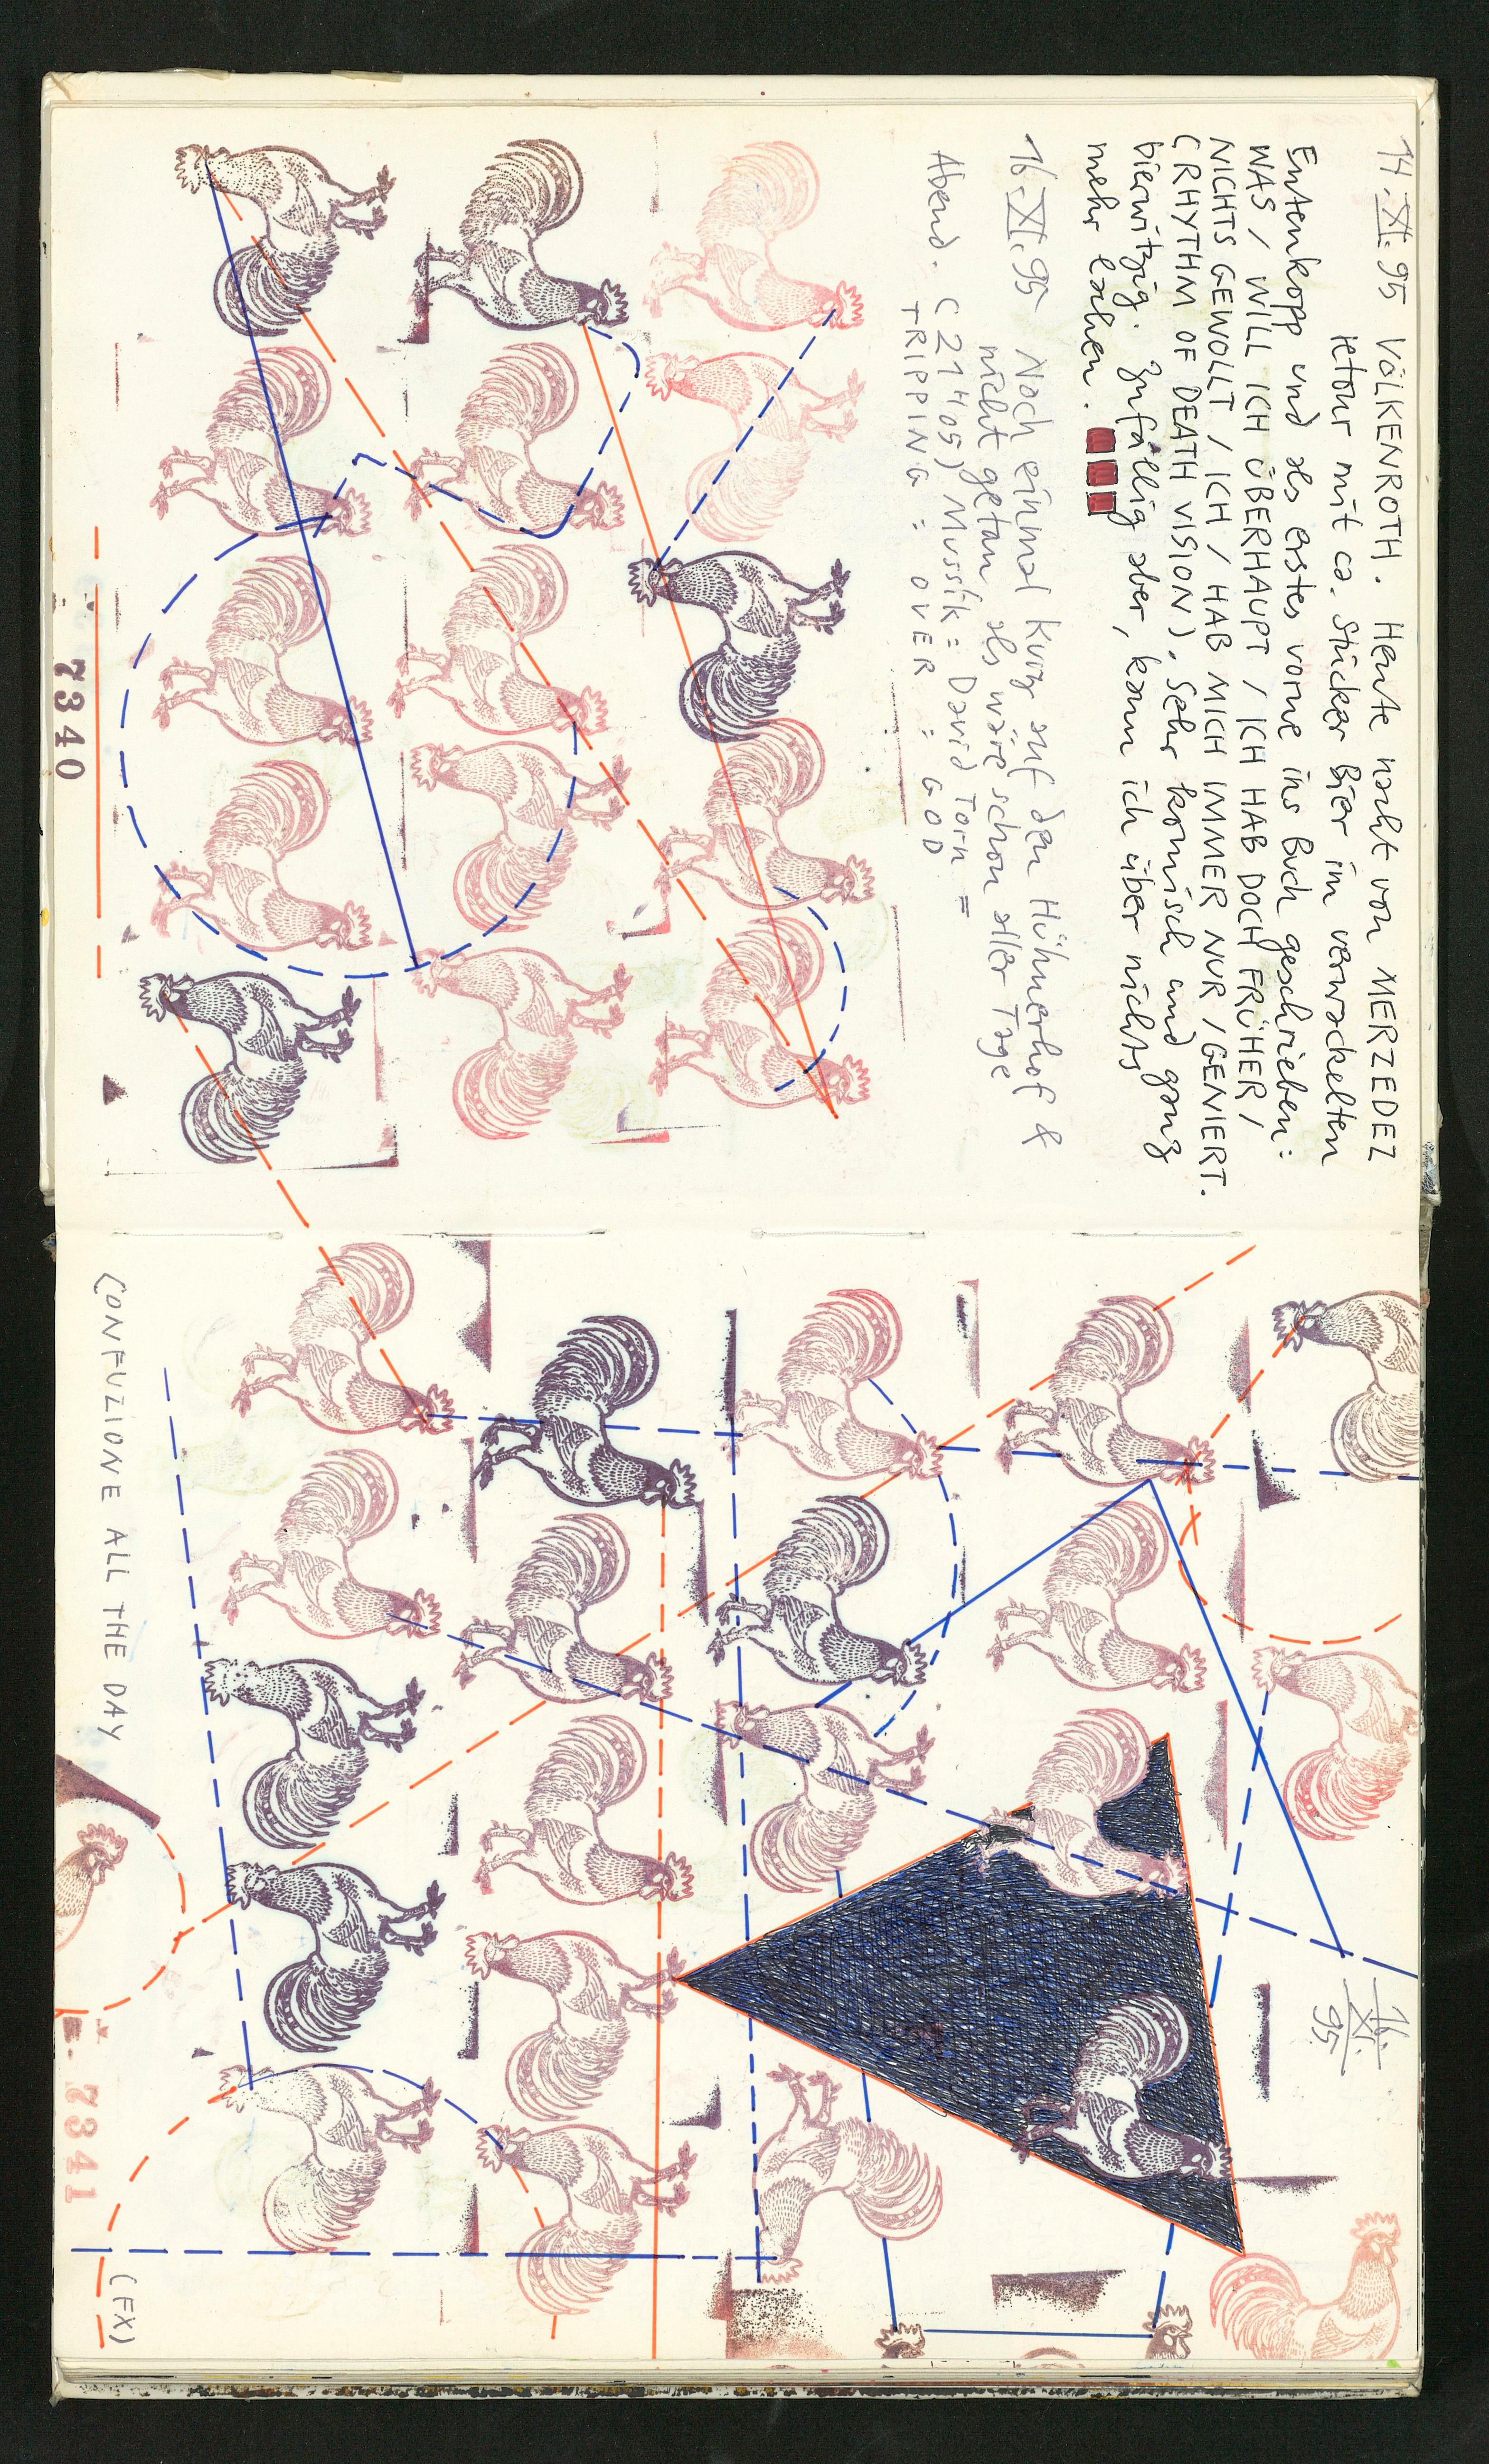 14. XI. 95 VÖLKENROTH. Heute nacht von MERZEDEZ
retour mit ca. Stücker Bier im verwackelten
Entenkopp und als erstes vorne ins Buch geschrieben:
WAS / WILL ICH ÜBERHAUPT / ICH HAB DOCH FRÜHER /
NICHTS GEWOLLT / ICH / HAB MICH IMMER NUR / GENIERT.
(RHYTHM OF DEATH VISION). Sehr komisch und ganz
bierwitzig. Zufällig aber, kann ich über nichts
mehr lachen.
16. XI. 95 Noch einmal kurz auf den Hühnerhof &
nicht getan als wäre schon aller Tage
Abend. (21 H 05) Mussik = David Torn =
TRIPPING : OVER : GOD
7340
16.
XI.
95
CONFUZIONE ALL THE DAY
(FX)
7341